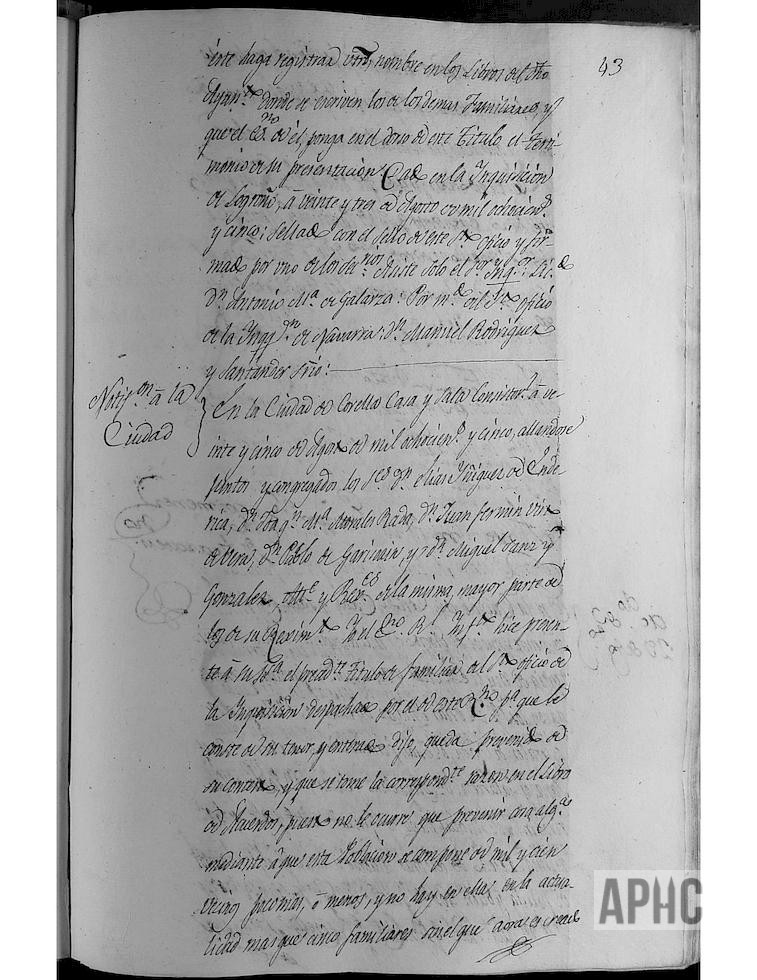 43
ente haga registrar vtro nombre en los Libros del dho
Ayun.to donde se escriven los de los demas Familiares, y
que el Es.no de él, ponga en el dorso de este Titulo el testi-
monio de su presentacion. Dado en la Inquisicion
de Logroño, á veinte y tres de Agosto de mil ochocien.s
y cinco; sellado con el sello de este S.to Oficio y fir-
mado por vno de los
D.n Antonio M.a de Galarza: Por m.do del S.to Oficio
de la Inqq.on de Navarra: D.n Manuel Rodriguez
y Santander Srio:
Notif.on á la
Ciudad
En la Ciudad de Corella Casa y Sala Consistor.l á ve-
inte y cinco de Agosto de mil ochocien.s y cinco, allandose
juntos y congregados los S.res D.n Elias Yñiguez de Ende-
rica, D.n Joaq.n M.a Morales Rada, D.n Juan fermin
de Vera, D.n Pablo de y D.n Miguel Sanz y
Gonzalez, Alc.e y Rex.es de la misma, mayor parte de
los de su Reximt.o Yo el Es.no R.l Ynf.to hice presen-
te á su S.a el preadt.o titulo de familiar del S.to Oficio de
la Inquisicion despachado por el de este R.no p.a que le
conste de su tenor, y enterado dijo, queda prevenido de
su contexto, y que se tome la correspond.te razon en el Libro
de Acuerdos, pues no le ocurre que prevenir cosa alg.a
mediante á que esta Poblacion se compone de mil y cien
vecinos, poco mas, ó menos, y no hay en ellas en la actua-
lidad mas que cinco familiares sin el que aora es creado
APHC